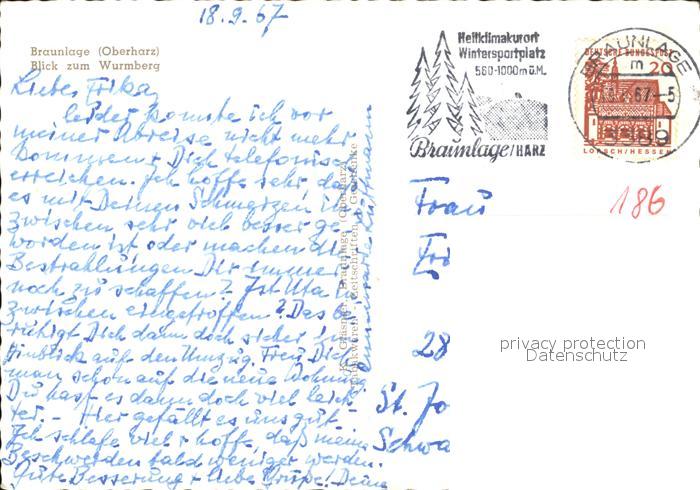 18.9.67
Braunlage (Oberharz)
Blick zum Wurmberg
Liebe Frika,
leider konnte ich vor
meiner Abreise nicht mehr
kommen + Dich telefonisch
erreichen. Ich hoffe sehr, da
es mit Deinen Schmerzen in
zwischen sehr viel besser ge
worden ist oder machen die
Bestrahlungen Dir immer
noch zu schaffen? Ist Uta in
zwischen eingetroffen? Das b
ruhigt Dich dann doch sicher im
Hinblick auf den Umzug. Freu Dich
man schon auf die neue Wohnung
Du hast es dann doch viel leich
ter. - Hier gefällt es uns gut.
Ich schlafe viel + hoffe, daß meine
Beschwerden bald weniger werden.
Gute Besserung + liebe Grüße! Deine
Heilklimakurort
Wintersportplatz
560-1000m ü.M.
Braunlage/HARZ
DEUTSCHE BUNDESPOST
20
LORSCH/HESSEN
BRAUNLAGE
67-5
Frau
186
28
St. Jo
Schwa
privacy protection
Datenschutz